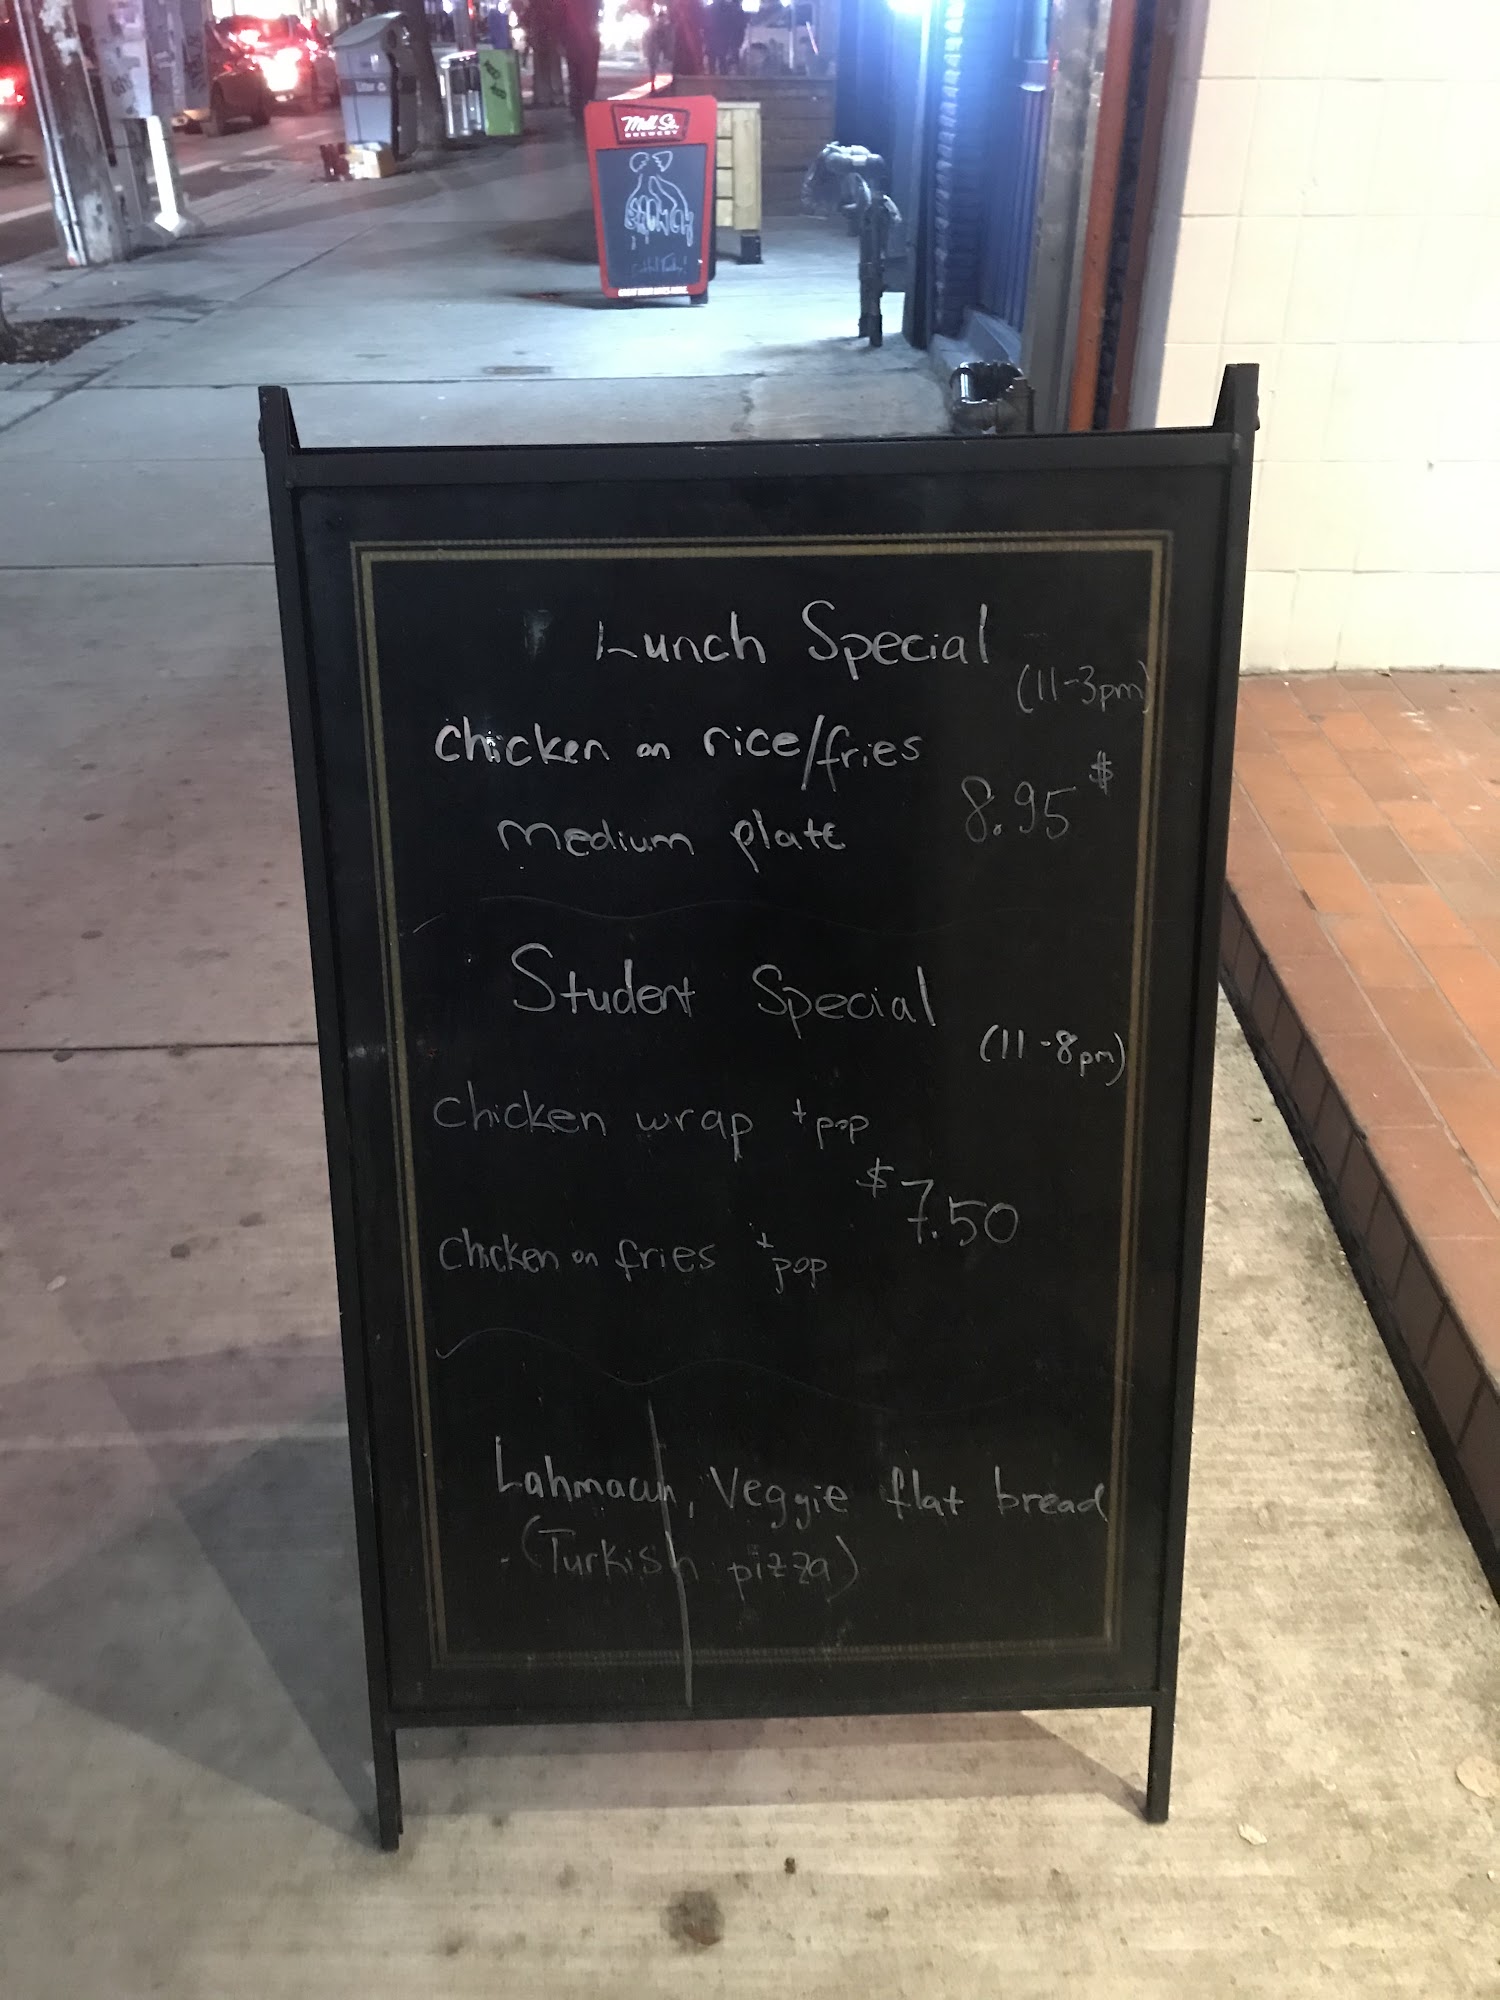 Litter
Mill St.
BREWERY
BRUNCH
GREAT BEER LIVES HERE.
Lunch Special
(11-3pm)
chicken on rice/fries
8.95$
medium plate
Student Special
(11-8pm)
chicken wrap + pop
$7.50
chicken on fries + pop
Lahmacun, Veggie flat bread
- (Turkish pizza)